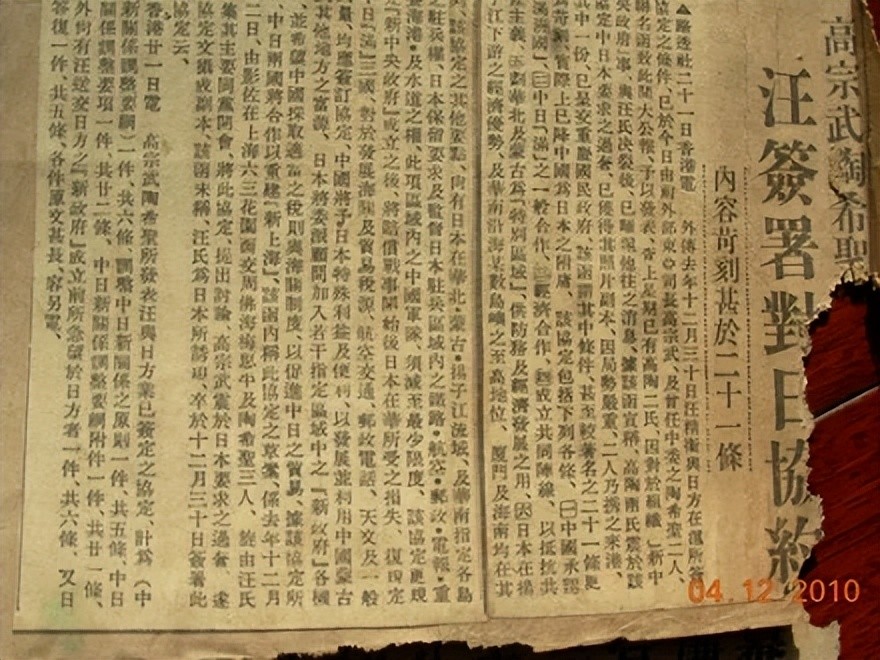 高宗武陶希聖
汪簽署對日協約
內容苛刻甚於二十一條
▲路透社二十一日香港電 外傳去年十二月三十日汪精衛與日方在滬所簽
協定之條件、已於今日由前外部東亞司長高宗武、及曾任中委之陶希聖二人、
聯名函致此間大公報、予以發表、查上星期已有高陶二氏、因對於組織「新中
央政府」事、與汪氏決裂後、已離滬他往之消息、據該函宣稱、高陶兩氏震於該
協定中日本要求之過奢、已獲得其照片副本、因局勢嚴重、二人乃携之來港、
其中一份、已呈交重慶國民政府、該函謂其中條件、甚至較著名之二十一條更
為苛細、實際上已降中國為日本之附庸、該協定包括下列各條、㊀中國承認
「滿洲國」、㊁中日「滿」之一般合作、㊂經濟合作、㊃成立共同陣線、以抵抗共
產主義、㊄劃華北及蒙古為「特別區域」、供防務及經濟發展之用、㊅日本在揚
子江下游之經濟優勢、及華南沿海某數島嶼之至高地位、廈門及海南均在其
、該協定之其他要點、尚有日本在華北・蒙古・揚子江流域、及華南指定各島
之駐兵權、日本保留要求及監督日本駐兵區域內之鐵路・航空・郵政・電報・重
要海港・及水道之權、此項區域內之中國軍隊、須減至最少限度、該協定更規
定「新中央政府」成立之後、將賠償戰事開始後日本在華所受之損失、復規定
中日「滿」三國、對於發展海關及貿易稅源、航空交通、郵政電話、天文及一般
測量、均應簽訂協定、中國將予日本特殊利益及便利、以發展並利用中國蒙古
其他地方之富源、日本將委派顧問加入若干指定區域中之「新政府」各機
、並希望中國採取適當之稅則與海關制度、以促進中日之貿易、據該協定所
、中日兩國將合作以重建「新上海」、該函內稱此協定之草案、係去年十二月
二日、由影佐在上海六三花園面交周佛海梅思平及陶希聖三人、旋由汪氏
集其主要同黨開會、將此協定、提出討論、高宗武震於日本要求之過奢、遂
協定文攝成副本、該函末稱、汪氏為日本所誘迫、卒於十二月三十日簽署此
協定云、
香港廿一日電 高宗武陶希聖所發表汪與日方業已簽定之協定、計為（中
新關係調整要綱）一件、共六條、調整中日新關係之原則一件、共五條、中日
新關係調整要項一件、共廿二條、中日新關係調整要綱附件一件、共廿一條、
外尚有汪送交日方之「新政府」成立前所急望於日方者一件、共六條、又日
答復一件、共五條、各件原文甚長、容另電、
04.12.2010